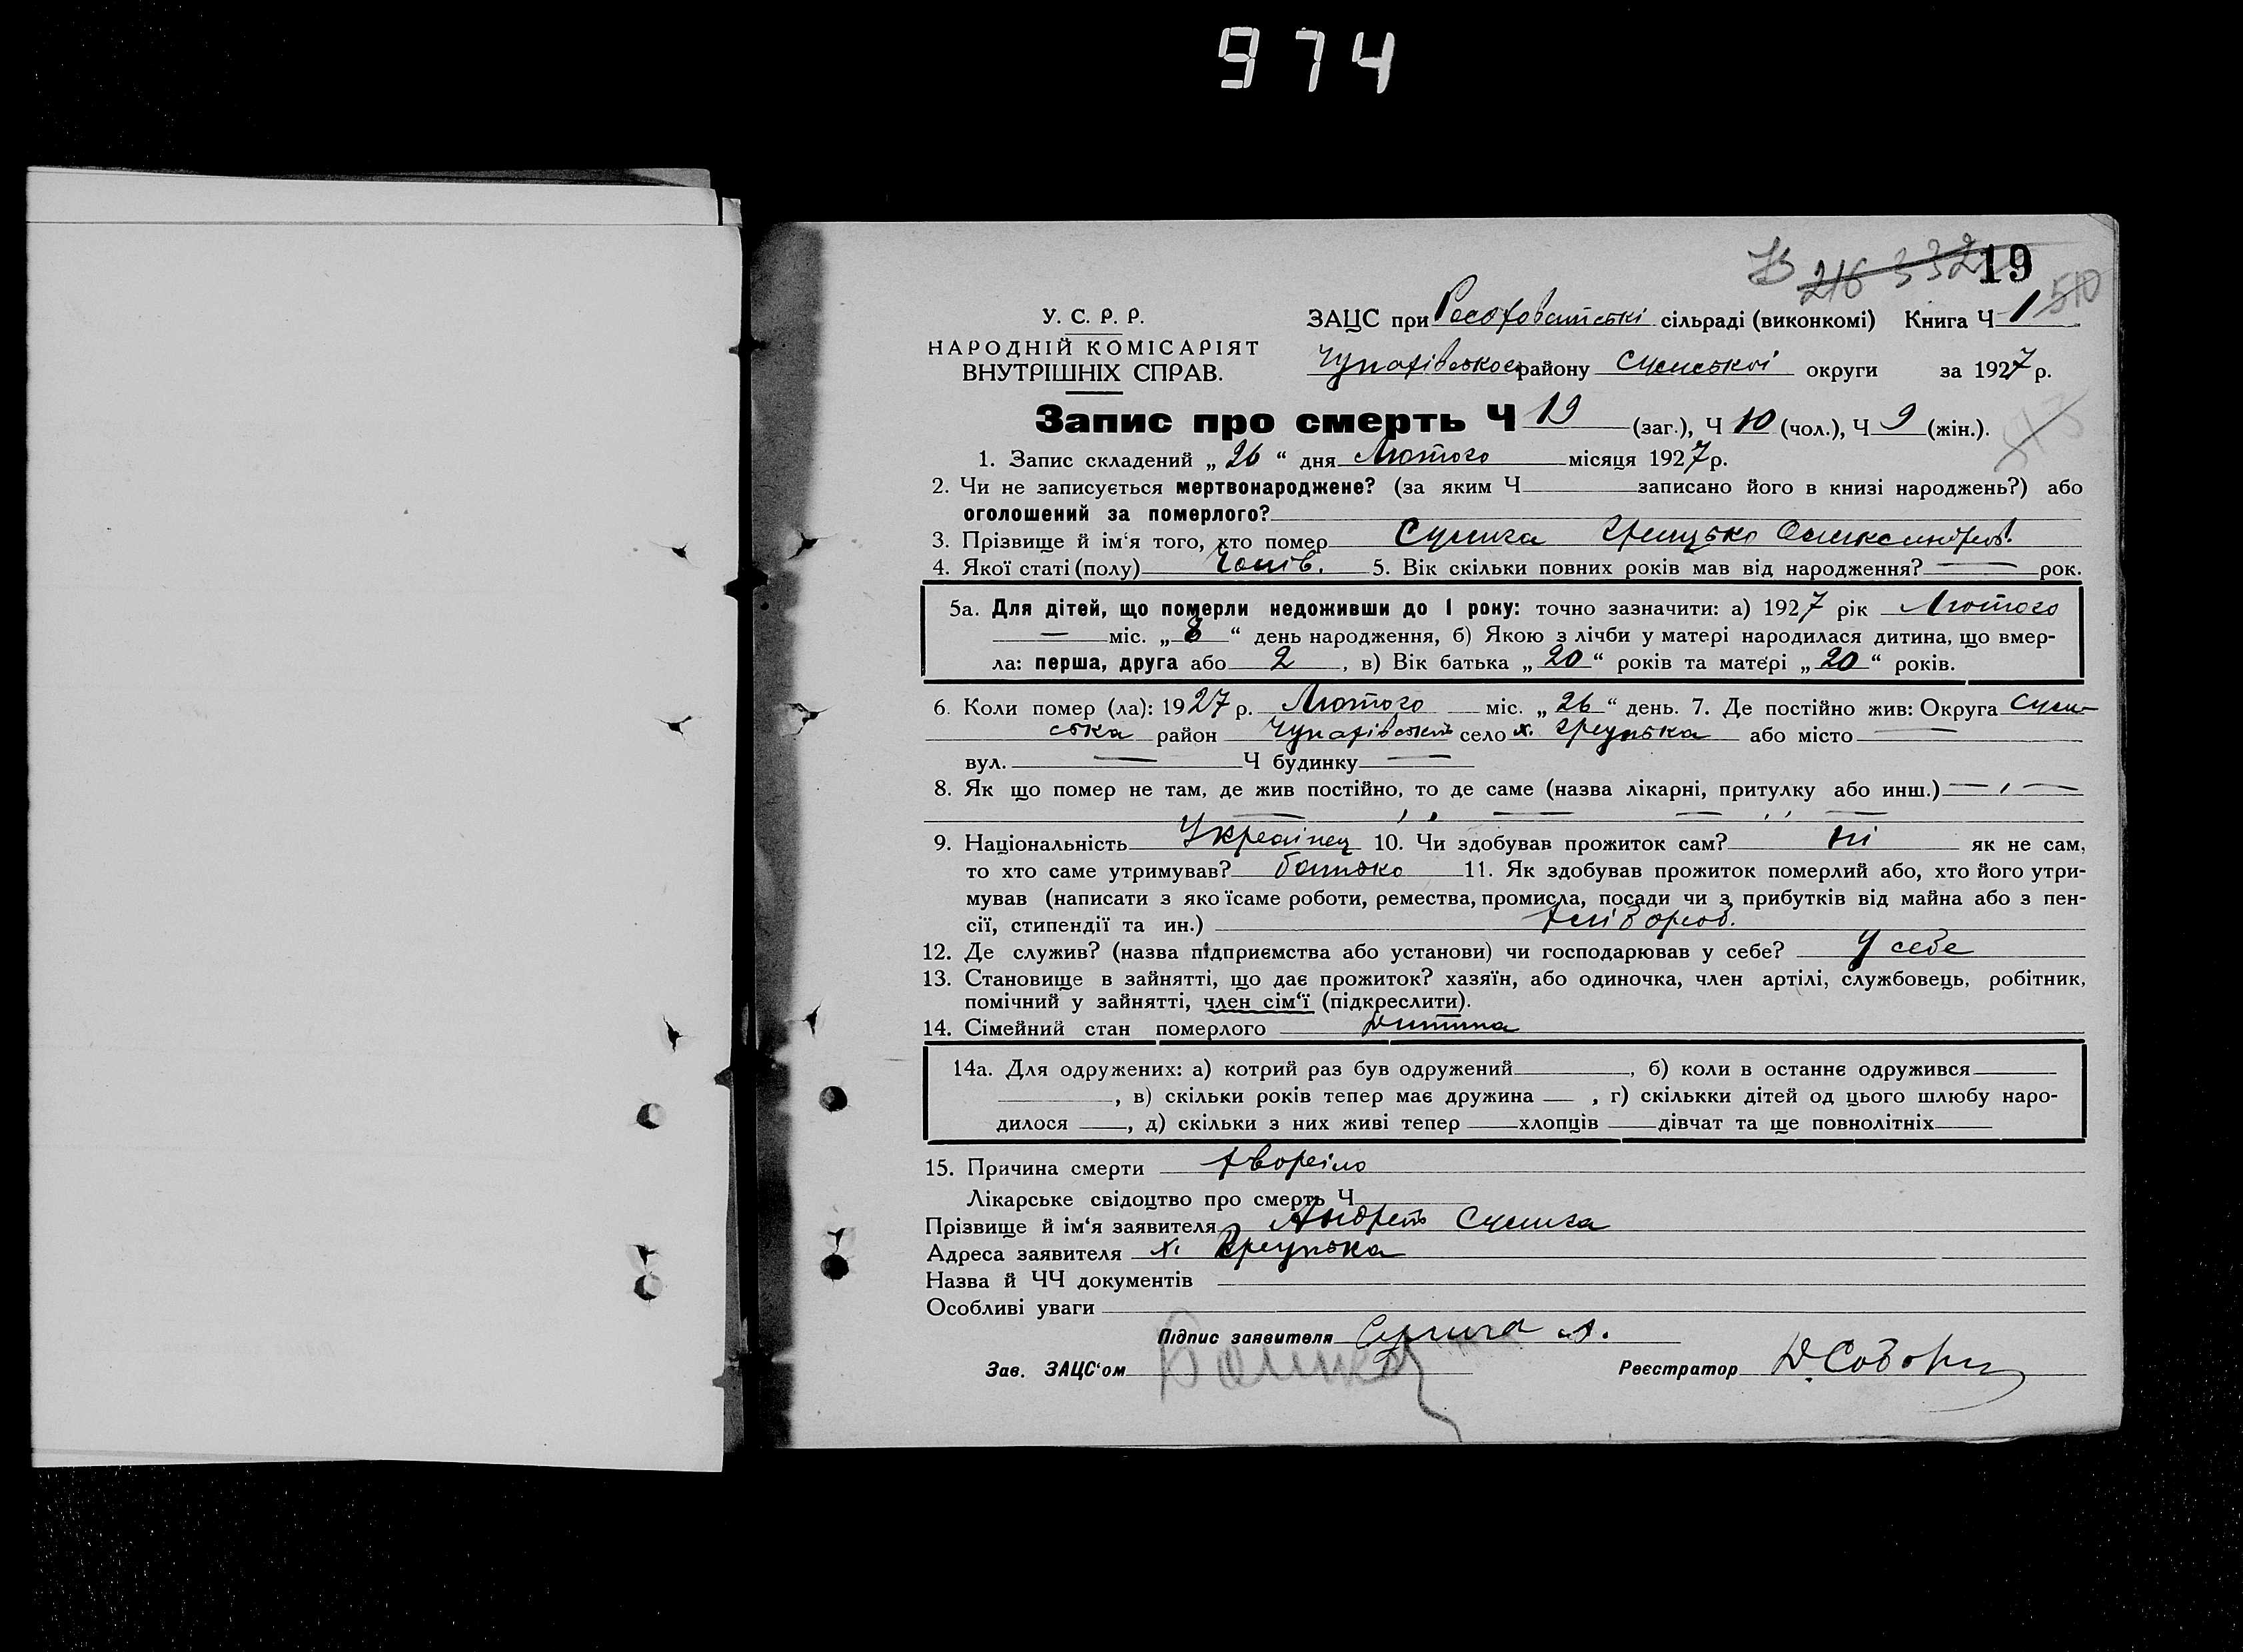 974
19
216 332
510
У. С. Р. Р.
НАРОДНІЙ КОМІСАРІЯТ
ВНУТРІШНІХ СПРАВ.
ЗАЦС при сільраді (виконкомі) Книга Ч 1
Чупахівського району Сумської округи за 1927 р.
Запис про смерть Ч 19 (заг.), Ч 10 (чол.), Ч 9 (жін.).
1. Запис складений „ 26 “ дня Лютого місяця 1927 р.
2. Чи не записується мертвонароджене? (за яким Ч записано його в книзі народжень?) або
оголошений за померлого?
3. Прізвище й ім'я того, хто помер Сулига Грицько Олександров.
4. Якої статі (полу) Чолів. 5. Вік скільки повних років мав від народження? — рок.
5а. Для дітей, що померли недоживши до 1 року: точно зазначити: а) 1927 рік Лютого
— міс. „ 8 “ день народження, б) Якою з лічби у матері народилася дитина, що вмер-
ла: перша, друга або 2 , в) Вік батька „ 20 “ років та матері „ 20 “ років.
6. Коли помер (ла): 1927 р. Лютого міс. „ 26 “ день. 7. Де постійно жив: Округа Сум-
ська район Чупахівський село х. Грунька або місто —
вул. — Ч будинку —
8. Як що помер не там, де жив постійно, то де саме (назва лікарні, притулку або инш.) —
9. Національність Украінец 10. Чи здобував прожиток сам? ні як не сам,
то хто саме утримував? батько 11. Як здобував прожиток померлий або, хто його утри-
мував (написати з яко їсаме роботи, ремества, промисла, посади чи з прибутків від майна або з пен-
сії, стипендії та ин.) хлібороб.
12. Де служив? (назва підприємства або установи) чи господарював у себе? У себе
13. Становище в зайнятті, що дає прожиток? хазяїн, або одиночка, член артілі, службовець, робітник,
помічний у зайнятті, член сім‘ї (підкреслити).
14. Сімейний стан померлого Дитина
14а. Для одружених: а) котрий раз був одружений , б) коли в останнє одружився
, в) скільки років тепер має дружина , г) скількки дітей од цього шлюбу наро-
дилося , д) скільки з них живі тепер хлопців дівчат та ще повнолітніх
15. Причина смерти хворіло
Лікарське свідоцтво про смерть Ч
Прізвище й ім‘я заявителя Андрей Сулига
Адреса заявителя х. Грунька
Назва й ЧЧ документів
Особливі уваги
Підпис заявителя Сулига А.
Зав. ЗАЦС‘ом Реєстратор